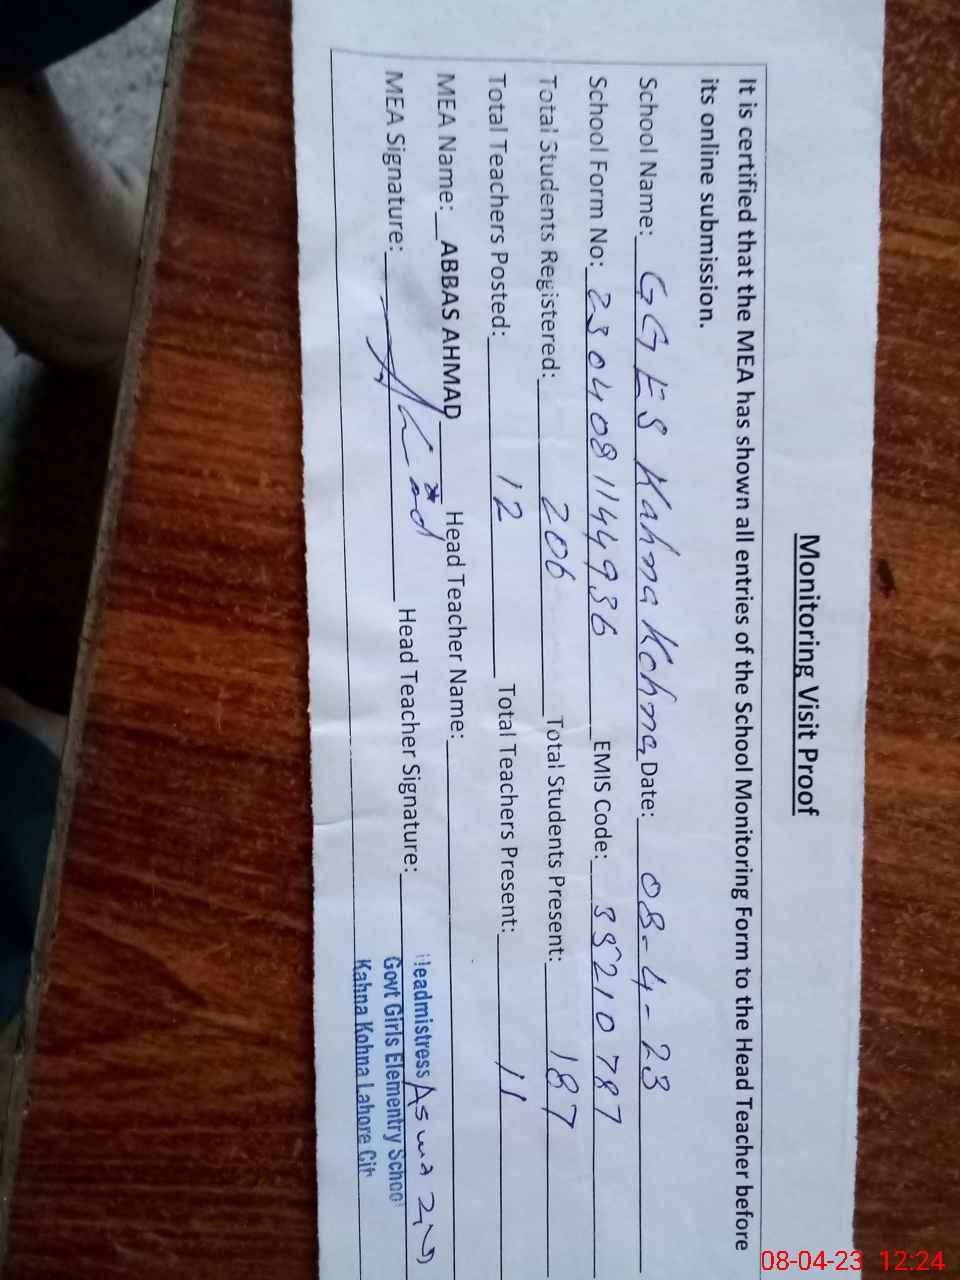 Monitoring Visit Proof
It is certified that the MEA has shown all entries of the School Monitoring Form to the Head Teacher before
its online submission.
School Name: GGES Kahna Kohna Date: 08-4-23
School Form No: 2304081144936 EMIS Code: 35210787
Total Students Registered: 206 Total Students Present: 187
Total Teachers Posted: 12 Total Teachers Present: 11
MEA Name: ABBAS AHMAD Head Teacher Name:
MEA Signature: Head Teacher Signature:
Headmistress Asma
Govt Girls Elementry School
Kahna Kohna Lahore Cit
08-04-23 12:24